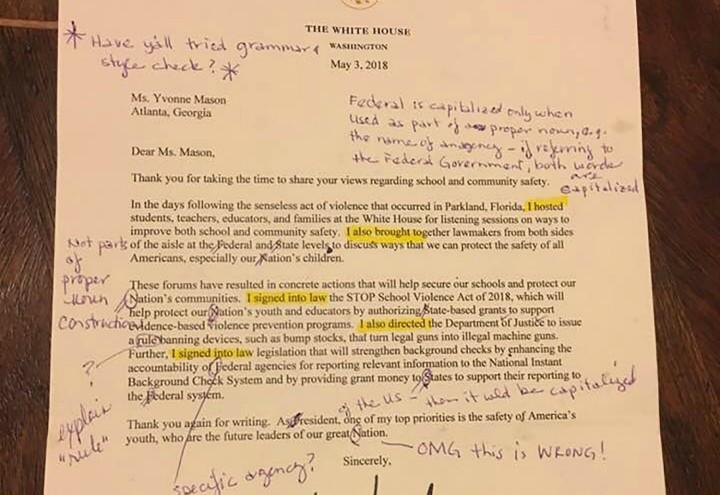 THE WHITE HOUSE
* Have y'all tried grammar &
WASHINGTON
style check? *
May 3, 2018
Ms. Yvonne Mason
Atlanta, Georgia
Federal is capitalized only when
used as part of proper noun, e.g.
the name of an agency - if referring to
the Federal Government, both words
are
capitalized
Dear Ms. Mason,
Thank you for taking the time to share your views regarding school and community safety.
In the days following the senseless act of violence that occurred in Parkland, Florida, I hosted
students, teachers, educators, and families at the White House for listening sessions on ways to
improve both school and community safety. I also brought together lawmakers from both sides
of the aisle at the Federal and State levels to discuss ways that we can protect the safety of all
Americans, especially our Nation's children.
Not part
of
proper
noun
construction
These forums have resulted in concrete actions that will help secure our schools and protect our
Nation's communities. I signed into law the STOP School Violence Act of 2018, which will
help protect our Nation's youth and educators by authorizing State-based grants to support
evidence-based violence prevention programs. I also directed the Department of Justice to issue
a rule banning devices, such as bump stocks, that turn legal guns into illegal machine guns.
Further, I signed into law legislation that will strengthen background checks by enhancing the
accountability of Federal agencies for reporting relevant information to the National Instant
Background Check System and by providing grant money to States to support their reporting to
the Federal system.
?
explain
"rule"
of the US - then it would be capitalized
Thank you again for writing. As President, one of my top priorities is the safety of America's
youth, who are the future leaders of our great Nation.
OMG this is WRONG!
Sincerely,
specific agency?